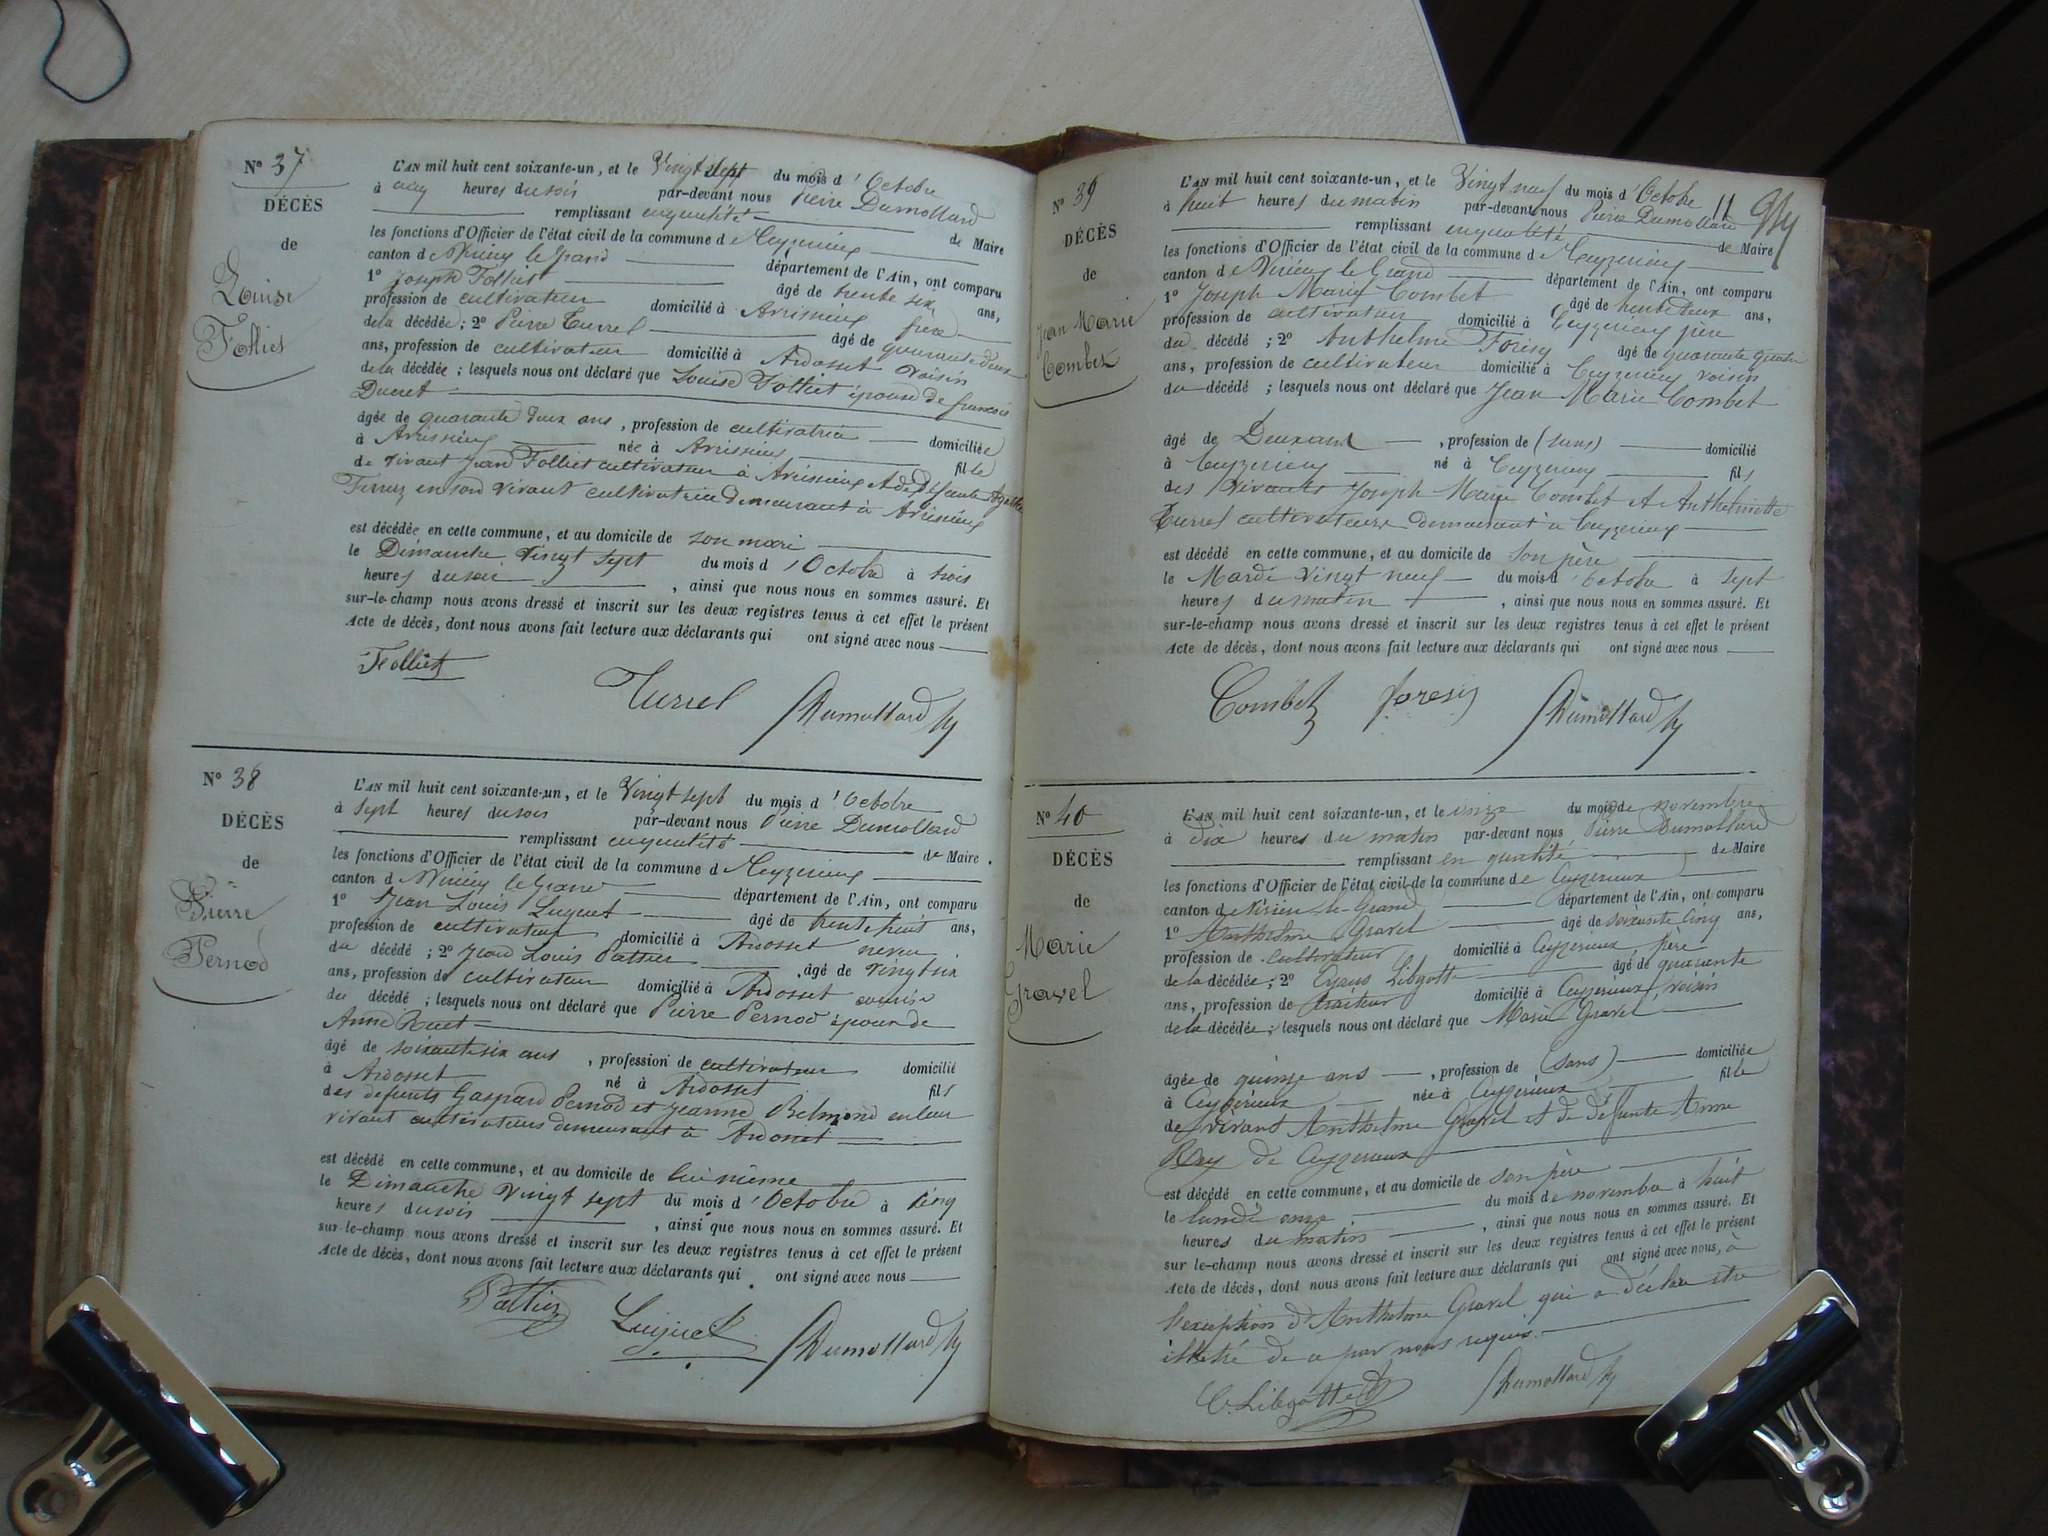 N° 37
DÉCÈS
de
Louise
Folliet
L'AN mil huit cent soixante-un, et le Vingt sept du mois d'Octobre
à cinq heures du soir par-devant nous Pierre Dumollard
remplissant en qualité de Maire
les fonctions d'Officier de l'état civil de la commune de Ceyzerieux
canton de Virieu le grand département de l'Ain, ont comparu
1° Joseph Folliet âgé de trente six ans,
profession de cultivateur domicilié à Avrissieux frère
de la décédée ; 2° Pierre Turrel âgé de quarante deux
ans, profession de cultivateur domicilié à Ardosset voisin
de la décédée ; lesquels nous ont déclaré que Louise Folliet épouse de françois
Ducret
âgée de quarante deux ans, profession de cultivatrice domiciliée
à Avrissieux née à Avrissieux fille
de vivant Jean Folliet cultivateur à Avrissieux et de défunte
en son vivant cultivatrice demeurant à Avrissieux
est décédée en cette commune, et au domicile de son mari
le Dimanche vingt sept du mois d'Octobre à trois
heures du soir, ainsi que nous nous en sommes assuré. Et
sur-le-champ nous avons dressé et inscrit sur les deux registres tenus à cet effet le présent
Acte de décès, dont nous avons fait lecture aux déclarants qui ont signé avec nous
Folliet
Turrel Dumollard
N° 38
DÉCÈS
de
Pierre
Pernod
L'AN mil huit cent soixante-un, et le Vingt sept du mois d'Octobre
à sept heures du soir par-devant nous Pierre Dumollard
remplissant en qualité de Maire
les fonctions d'Officier de l'état civil de la commune de Ceyzerieux
canton de Virieu le Grand département de l'Ain, ont comparu
1° Jean Louis Luquet âgé de trente huit ans,
profession de cultivateur domicilié à Ardosset neveu
du décédé ; 2° Jean Louis Pattier, âgé de vingt six
ans, profession de cultivateur domicilié à Ardosset cousin
du décédé ; lesquels nous ont déclaré que Pierre Pernod époux de
Anne
âgé de soixante six ans, profession de cultivateur domicilié
à Ardosset né à Ardosset fils
des défunts Gaspard Pernod et Jeanne Belmond en leur
vivant cultivateurs demeurant à Ardosset
est décédé en cette commune, et au domicile de lui même
le Dimanche vingt sept du mois d'Octobre à cinq
heures du soir, ainsi que nous nous en sommes assuré. Et
sur-le-champ nous avons dressé et inscrit sur les deux registres tenus à cet effet le présent
Acte de décès, dont nous avons fait lecture aux déclarants qui ont signé avec nous
Pattier
Luquet Dumollard
11
N° 39
DÉCÈS
de
Jean Marie
Combet
L'AN mil huit cent soixante-un, et le Vingt neuf du mois d'Octobre
à huit heures du matin par-devant nous Pierre Dumollard
remplissant en qualité de Maire
les fonctions d'Officier de l'état civil de la commune de Ceyzerieux
canton de Virieu le Grand département de l'Ain, ont comparu
1° Joseph Marie Combet âgé de trente deux ans,
profession de cultivateur domicilié à Ceyzerieux père
du décédé ; 2° Anthelme Foresy âgé de quarante quatre
ans, profession de cultivateur domicilié à Ceyzerieux voisin
du décédé ; lesquels nous ont déclaré que Jean Marie Combet
âgé de Deux ans, profession de (sans) domicilié
à Ceyzerieux né à Ceyzerieux fils
des vivants Joseph Marie Combet et Anthelmette
Turrel cultivateurs demeurant à Ceyzerieux
est décédé en cette commune, et au domicile de son père
le Mardi vingt neuf du mois d'Octobre à sept
heures du matin, ainsi que nous nous en sommes assuré. Et
sur-le-champ nous avons dressé et inscrit sur les deux registres tenus à cet effet le présent
Acte de décès, dont nous avons fait lecture aux déclarants qui ont signé avec nous
Combet foresy Dumollard
N° 40
DÉCÈS
de
Marie
Gravel
L'AN mil huit cent soixante-un, et le onze du mois de novembre
à dix heures du matin par-devant nous Pierre Dumollard
remplissant en qualité de Maire
les fonctions d'Officier de l'état civil de la commune de Ceyzerieux
canton de Virieu-le-Grand département de l'Ain, ont comparu
1° Anthelme Gravel âgé de soixante cinq ans,
profession de cultivateur domicilié à Ceyzerieux, père
de la décédée ; 2° Libgott âgé de quarante
ans, profession de traiteur domicilié à Ceyzerieux, voisin
de la décédée ; lesquels nous ont déclaré que Marie Gravel
âgée de quinze ans, profession de (sans) domiciliée
à Ceyzerieux née à Ceyzerieux fille
de vivant Anthelme Gravel et de défunte Anne
Rey de Ceyzerieux
est décédé en cette commune, et au domicile de son père
le lundi onze du mois de novembre à huit
heures du matin, ainsi que nous nous en sommes assuré. Et
sur le-champ nous avons dressé et inscrit sur les deux registres tenus à cet effet le présent
Acte de décès, dont nous avons fait lecture aux déclarants qui ont signé avec nous, à
l'exception d'Anthelme Gravel qui a déclaré être
illettré de ce par nous requis.
C. Libgott Dumollard